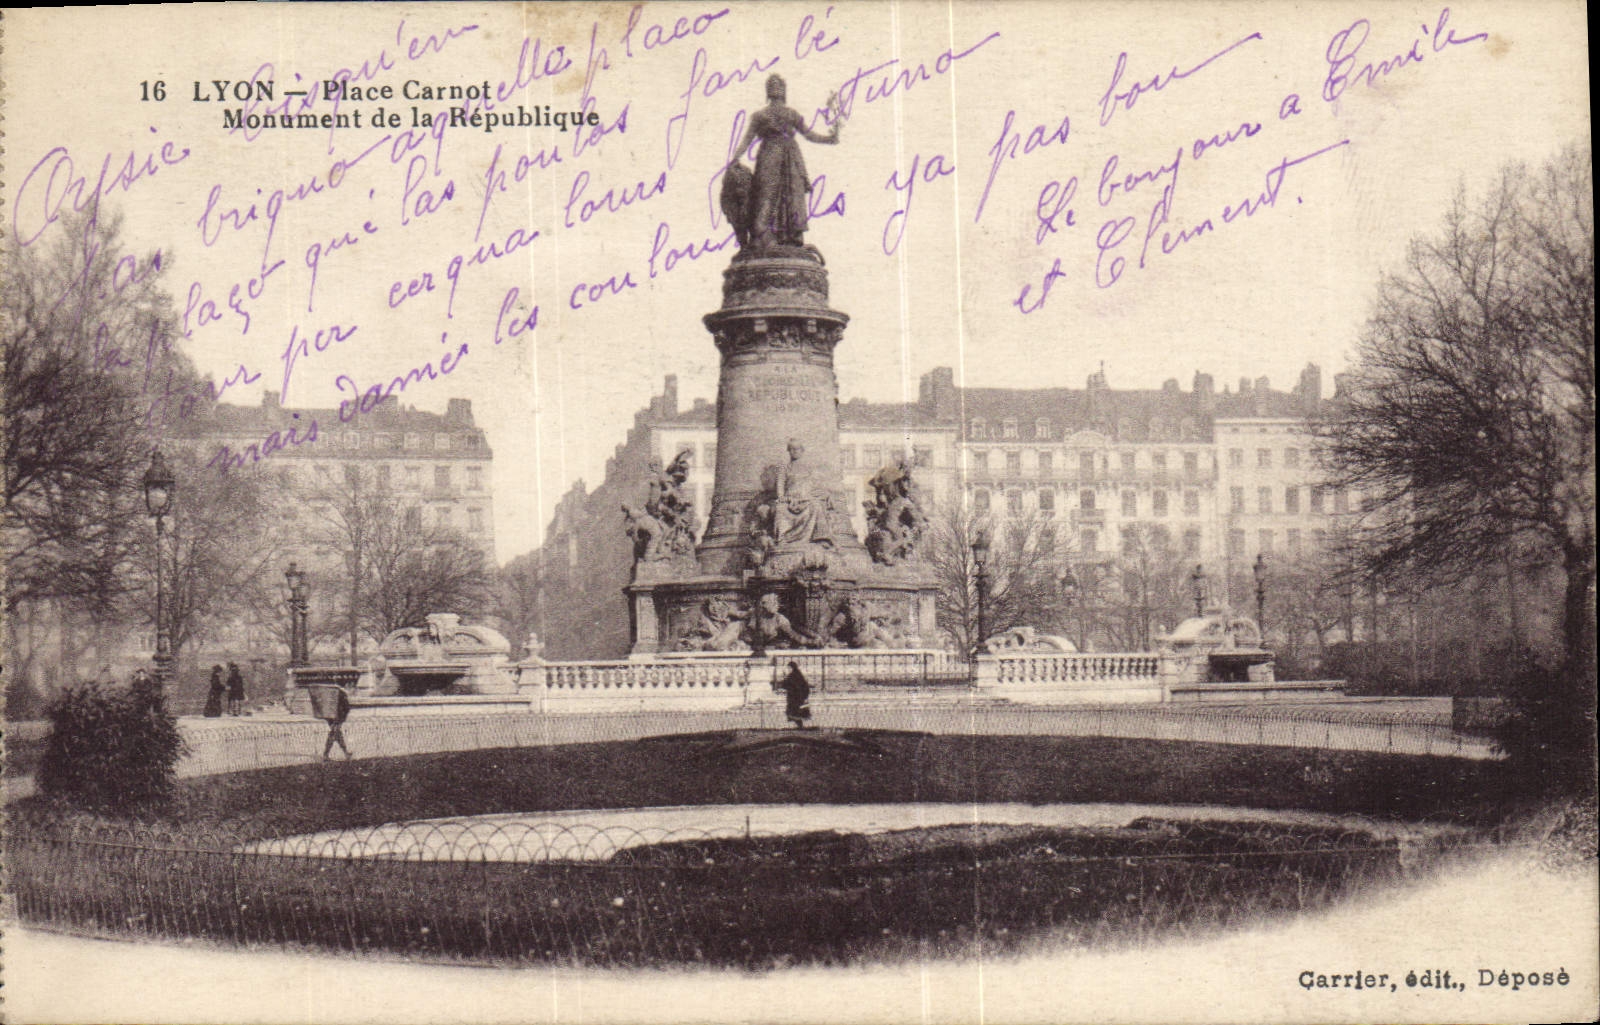 16 LYON — Place Carnot
Monument de la République
Aysie bisqu'en
pas briguo aquelle plaço
la plaço qué las poulos fan lé
tour per cerqua lours fourtuno
mais damé les couloumels ya pas bou
Le bonjour a Emile
et Clement.
A LA
GLOIRE DE LA
REPUBLIQUE
1889
Carrier, édit., Déposé